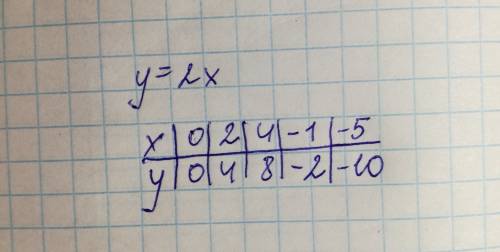 y=2x
x|0|2|4|-1|-5
y|0|4|8|-2|-10